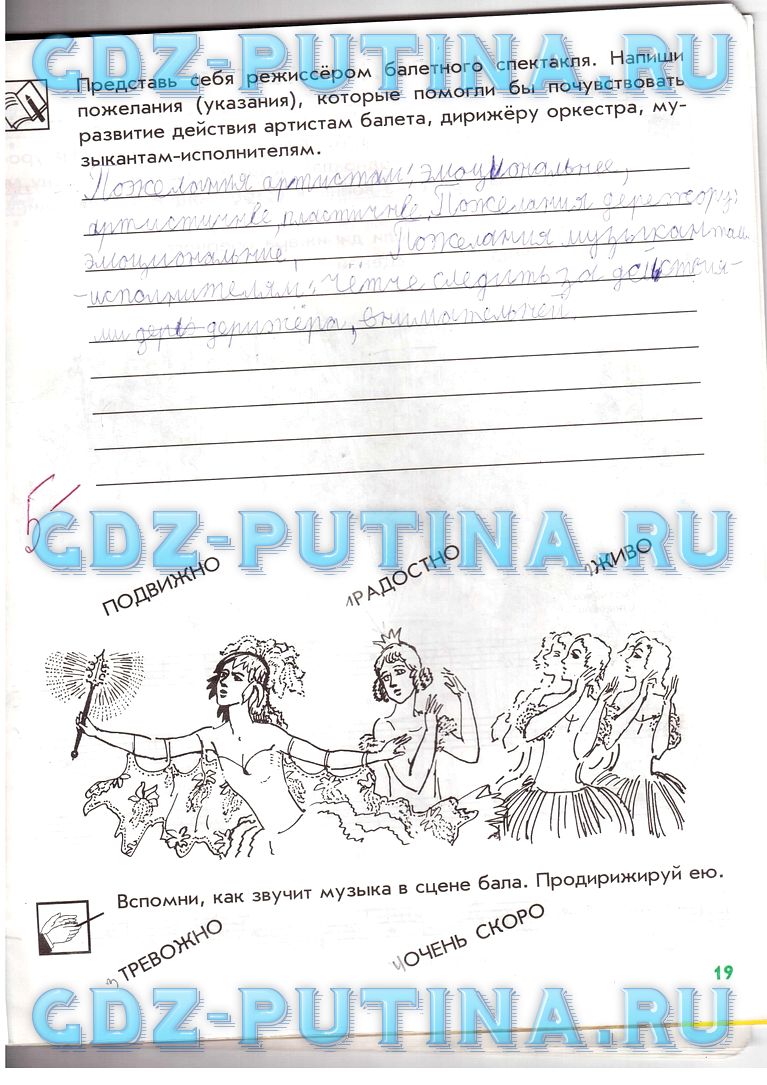 GDZ-PUTINA.RU
Представь себя режиссёром балетного спектакля. Напиши
пожелания (указания), которые помогли бы почувствовать
развитие действия артистам балета, дирижёру оркестра, му-
зыкантам-исполнителям.
Пожелания артистам: эмоциональнее,
артистичнее, пластичнее. Пожелания
эмоциональние, Пожелания музыкантам
-исполнителям: Чётче следить за действия-
ми дерижёра, внимательней.
5-
GDZ-PUTINA.RU
ПОДВИЖНО РАДОСТНО ЖИВО
Вспомни, как звучит музыка в сцене бала. Продирижируй ею.
ТРЕВОЖНО ОЧЕНЬ СКОРО
19
GDZ-PUTINA.RU